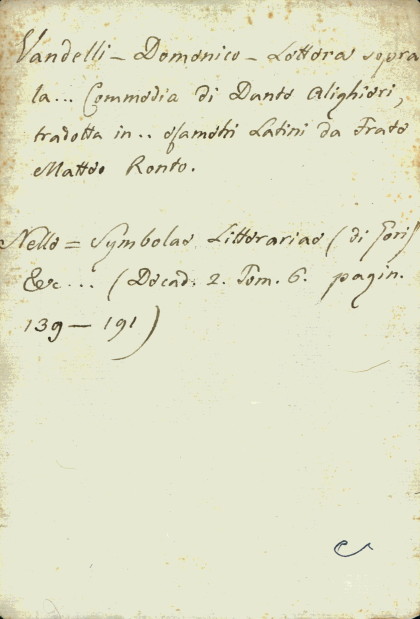 Vandelli - Domenico - Lettera sopra
la... Commedia di Dante Alighieri,
tradotta in .. esametri Latini da Frate
Matteo Ronto.
Nelle = Symbolae Litterariae (di Gori)
&c... (Decad. 2. Tom. 6. pagin.
139 - 191)